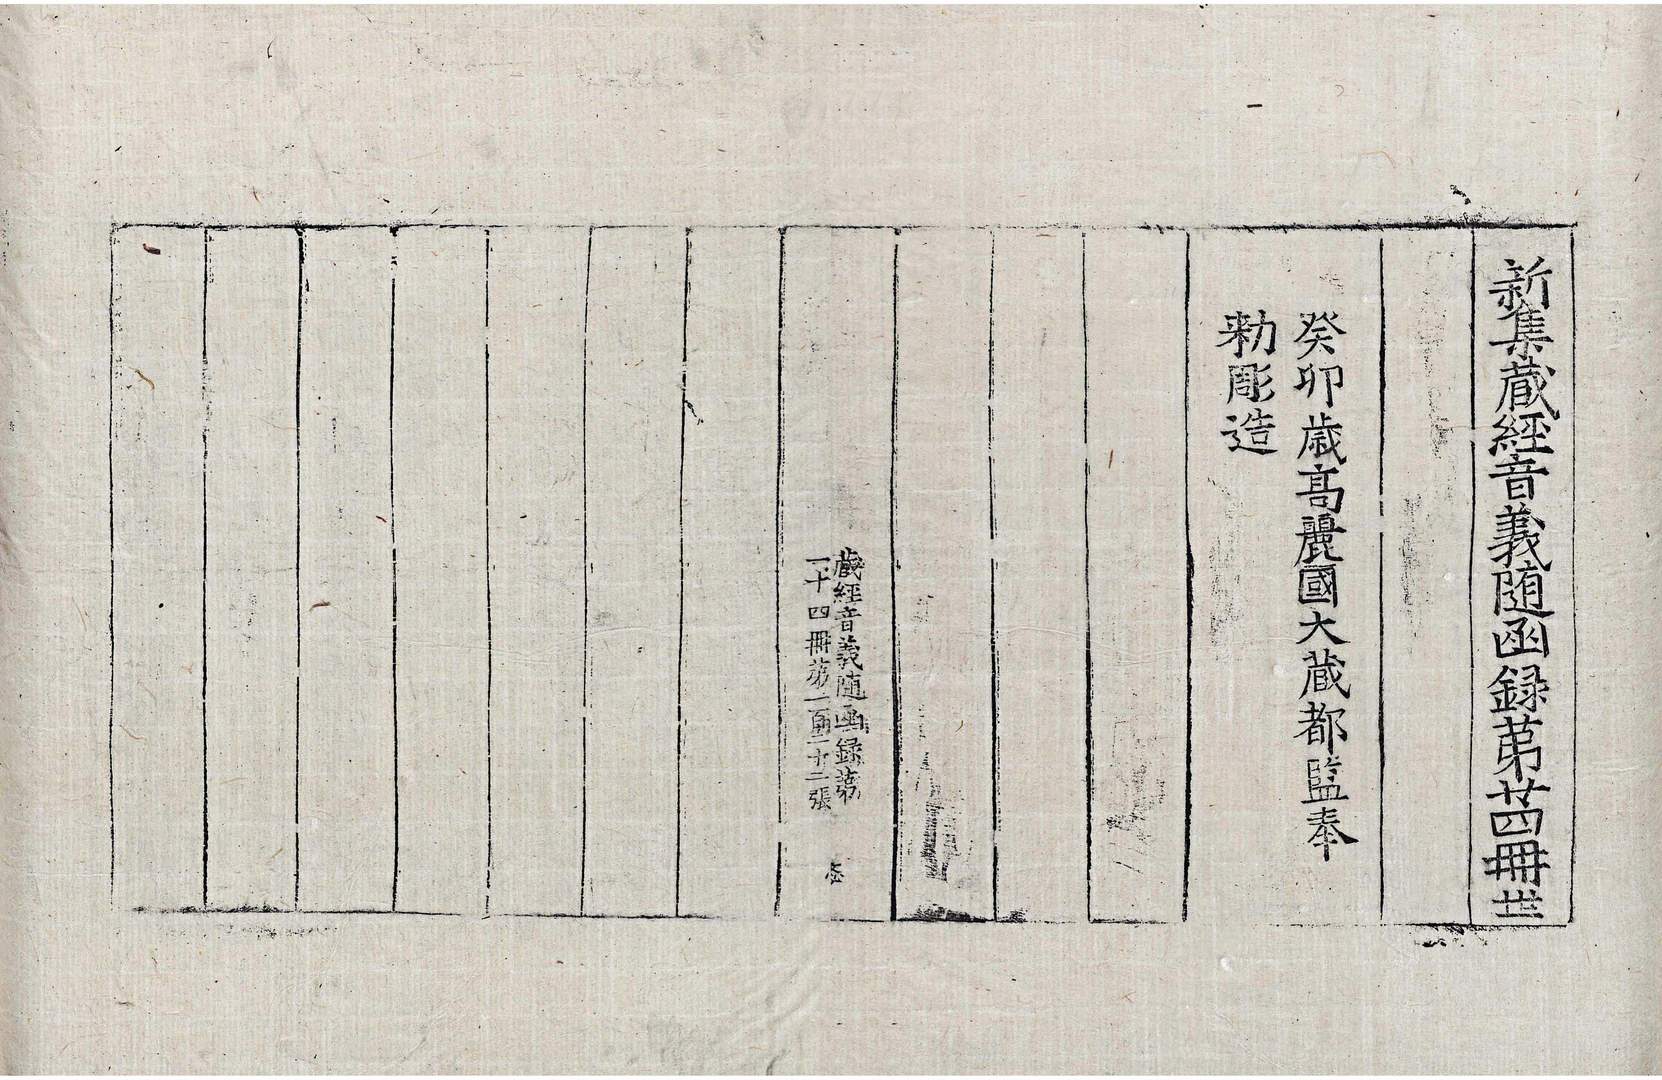 新集藏經音義随函録第廿四冊 世
癸卯歳髙麗國大藏都監奉
勑彫造
藏經音義随函録第
二十四冊第一百二十二張